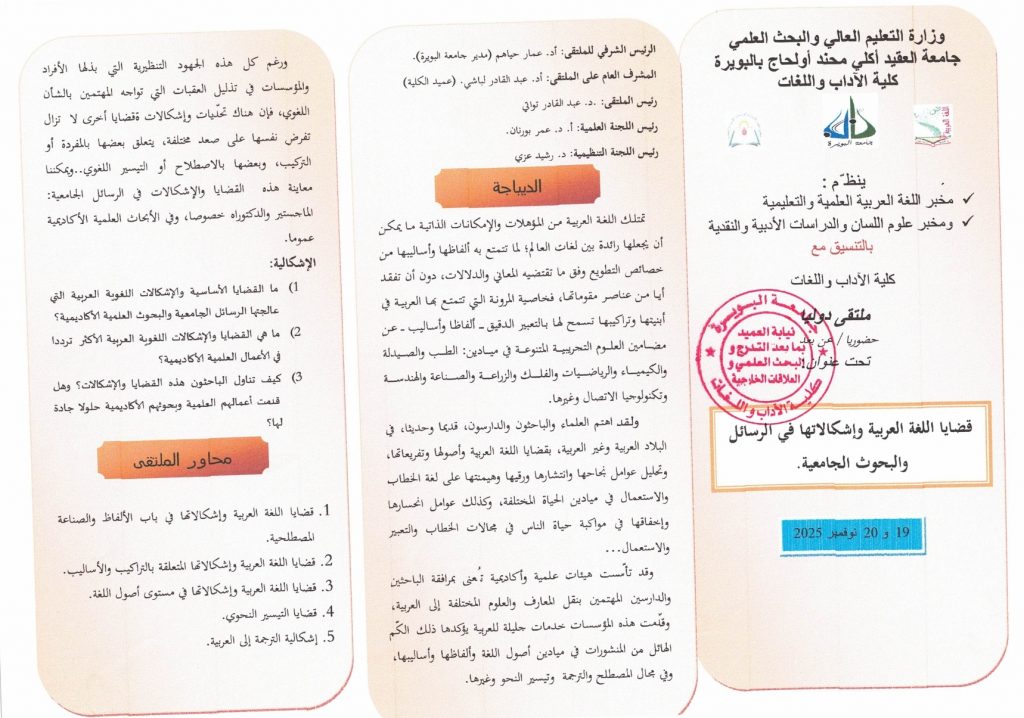 وزارة التعليم العالي والبحث العلمي
جامعة العقيد أكلي محند أولحاج بالبويرة
كلية الآداب واللغات
جامعة البويرة
اللغة العربية
ينظّم :
✓ مخبر اللغة العربية العلمية والتعليمية
✓ ومخبر علوم اللسان والدراسات الأدبية والنقدية
بالتنسيق مع
كلية الآداب واللغات
ملتقى دوليا
حضوريا / عن بعد
تحت عنوان:
جامعة البويرة
نيابة العميد
بما بعد التدرج و
البحث العلمي و
العلاقات الخارجية
كلية الآداب و اللغات
قضايا اللغة العربية وإشكالاتها في الرسائل
والبحوث الجامعية.
19 و 20 نوفمبر 2025
الرئيس الشرفي للملتقى: أد. عمار حياهم (مدير جامعة البويرة)
المشرف العام على الملتقى: أد. عبد القادر لباشي. (عميد الكلية)
رئيس الملتقى: .د. عبد القادر تواتي
رئيس اللجنة العلمية: أ. د. عمر بورنان.
رئيس اللجنة التنظيمية: د. رشيد عزي
الديباجة
تمتلك اللغة العربية من المؤهلات والإمكانات الذاتية ما يمكن
أن يجعلها رائدة بين لغات العالم؛ لما تتمتع به ألفاظها وأساليبها من
خصائص التطويع وفق ما تقتضيه المعاني والدلالات، دون أن تفقد
أيا من عناصر مقوماتها، فخاصية المرونة التي تتمتع بها العربية في
أبنيتها وتراكيبها تسمح لها بالتعبير الدقيق ــ ألفاظا وأساليب ــ عن
مضامين العلوم التجريبية المتنوعة في ميادين: الطب والصيدلة
والكيمياء والرياضيات والفلك والزراعة والصناعة والهندسة
وتكنولوجيا الاتصال وغيرها.
ولقد اهتم العلماء والباحثون والدارسون، قديما وحديثا، في
البلاد العربية وغير العربية، بقضايا اللغة العربية وأصولها وتفريعاتها،
وتحليل عوامل نجاحها وانتشارها ورقيها وهيمنتها على لغة الخطاب
والاستعمال في ميادين الحياة المختلفة، وكذلك عوامل انحسارها
وإخفاقها في مواكبة حياة الناس في مجالات الخطاب والتعبير
والاستعمال...
وقد تأسست هيئات علمية وأكاديمية تُعنى بمرافقة الباحثين
والدارسين المهتمين بنقل المعارف والعلوم المختلفة إلى العربية،
وقدمت هذه المؤسسات خدمات جليلة للعربية يؤكدها ذلك الكّم
الهائل من المنشورات في ميادين أصول اللغة وألفاظها وأساليبها،
وفي مجال المصطلح والترجمة وتيسير النحو وغيرها.
ورغم كل هذه الجهود التنظيرية التي بذلها الأفراد
والمؤسسات في تذليل العقبات التي تواجه المهتمين بالشأن
اللغوي، فإن هناك تحدّيات وإشكالات ةقضايا أخرى لا تزال
تفرض نفسها على صعد مختلفة، يتعلق بعضها بالمفردة أو
التركيب، وبعضها بالاصطلاح أو التيسير اللغوي..ويمكننا
معاينة هذه القضايا والإشكالات في الرسائل الجامعية:
الماجستير والدكتوراه خصوصا، وفي الأبحاث العلمية الأكاديمية
عموما.
الإشكالية:
1) ما القضايا الأساسية والإشكالات اللغوية العربية التي
عالجتها الرسائل الجامعية والبحوث العلمية الأكاديمية؟
2) ما هي القضايا والإشكالات اللغوية العربية الأكثر ترددا
في الأعمال العلمية الأكاديمية؟
3) كيف تناول الباحثون هذه القضايا والإشكالات؟ وهل
قدمت أعمالهم العلمية وبحوثهم الأكاديمية حلولا جادة
لها؟
محاور الملتقى
1. قضايا اللغة العربية وإشكالاتها في باب الألفاظ والصناعة
المصطلحية.
2. قضايا اللغة العربية وإشكالاتها المتعلقة بالتراكيب والأساليب.
3. قضايا اللغة العربية وإشكالاتها في مستوى أصول اللغة.
4. قضايا التيسير النحوي.
5. إشكالية الترجمة إلى العربية.